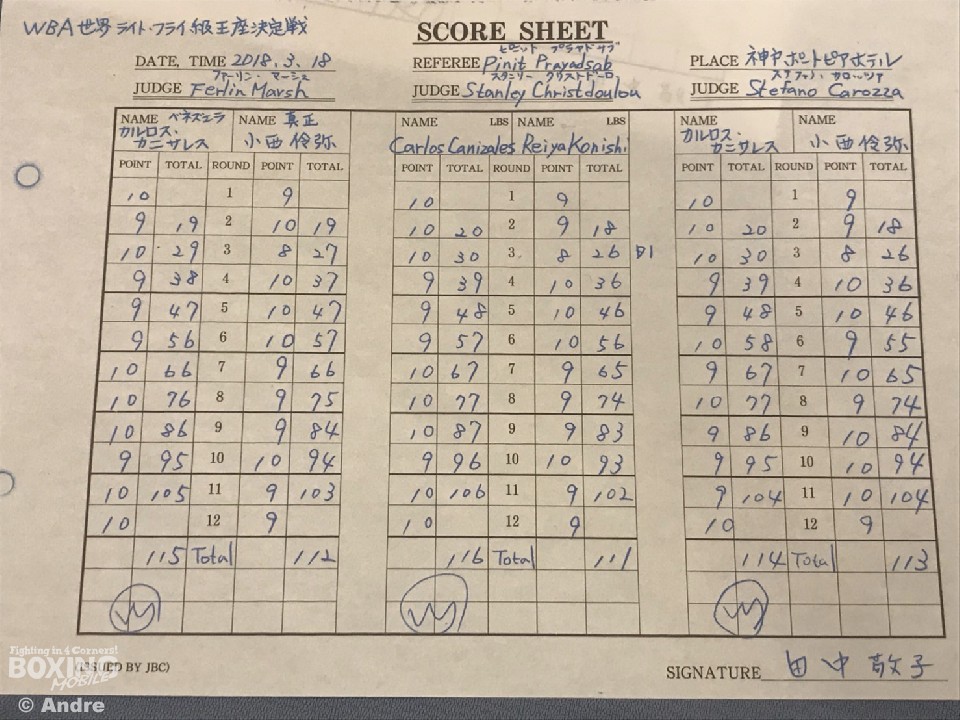 WBA世界ライト・フライ級王座決定戦
SCORE SHEET
DATE, TIME 2018. 3. 18
REFEREE Pinit Prayadsab ピニット プラヤドサブ
PLACE 神戸ポートピアホテル
JUDGE Ferlin Marsh ファーリン・マーシュ
JUDGE Stanley Christdoulou スタンリー クリストドーロ
JUDGE Stefano Carozza ステファノ・カロッツァ
NAME ベネズエラ カルロス・カニサレス NAME 真正 小西伶弥
NAME LBS NAME LBS
Carlos Canizales Reiya Konishi
NAME カルロス・カニサレス NAME 小西伶弥
POINT TOTAL ROUND POINT TOTAL POINT TOTAL ROUND POINT TOTAL POINT TOTAL ROUND POINT TOTAL
10 1 9 10 1 9 10 1 9
9 19 2 10 19 10 20 2 9 18 10 20 2 9 18
10 29 3 8 27 10 30 3 8 26 D1 10 30 3 8 26
9 38 4 10 37 9 39 4 10 36 9 39 4 10 36
9 47 5 10 47 9 48 5 10 46 9 48 5 10 46
9 56 6 10 57 9 57 6 10 56 10 58 6 9 55
10 66 7 9 66 10 67 7 9 65 9 67 7 10 65
10 76 8 9 75 10 77 8 9 74 10 77 8 9 74
10 86 9 9 84 10 87 9 9 83 9 86 9 10 84
9 95 10 10 94 9 96 10 10 93 9 95 10 10 94
10 105 11 9 103 10 106 11 9 102 9 104 11 10 104
10 12 9 10 12 9 10 12 9
115 Total 112 116 Total 111 114 Total 113
(ISSUED BY JBC)
SIGNATURE 田中敬子
Fighting in 4 Corners!
BOXING
MOBILES
© Andre